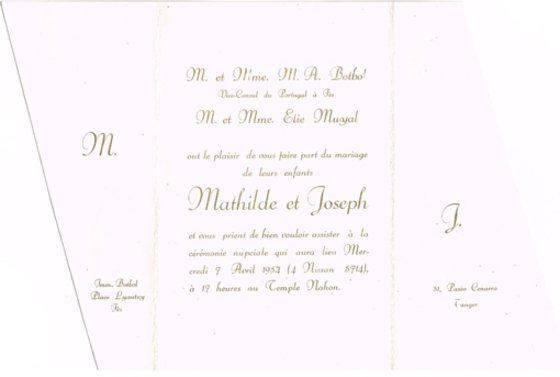 M.
Imm. Botbol
Place Lyautey
Fès
M. et Mme. M. A. Botbol
Vice-Consul du Portugal à Fès
M. et Mme. Elie Muyal
ont le plaisir de vous faire part du mariage
de leurs enfants
Mathilde et Joseph
et vous prient de bien vouloir assister à la
cérémonie nupciale qui aura lieu Mer-
credi 7 Avril 1954 (4 Nissan 5714),
à 17 heures au Temple Nahon.
J.
51, Paséo Cenarro
Tanger